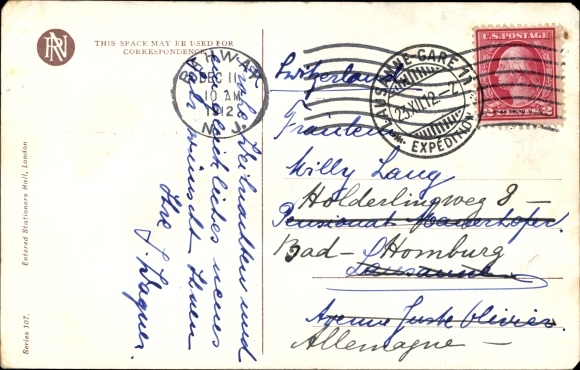 RN
THIS SPACE MAY BE USED FOR
CORRESPONDENCE
RAHWAY
DEC 11
10 AM
1912
N.J.
LAUSANNE-GARE
23.XII.12.-7
EXPÉDITION
U.S. POSTAGE
2 2
Frohe Weihnachten und
ein glückliches neues
Jahr wünscht Ihnen
Ihre J. Wagner.
Switzerland
Fräulein
Milly Lang
Holderlingweg 8 -
Pensionat Mauerhofer
Bad-Homburg
Lausanne
Avenue Juste Olivier.
Allemagne -
Entered Stationers Hall, London
Series 107.